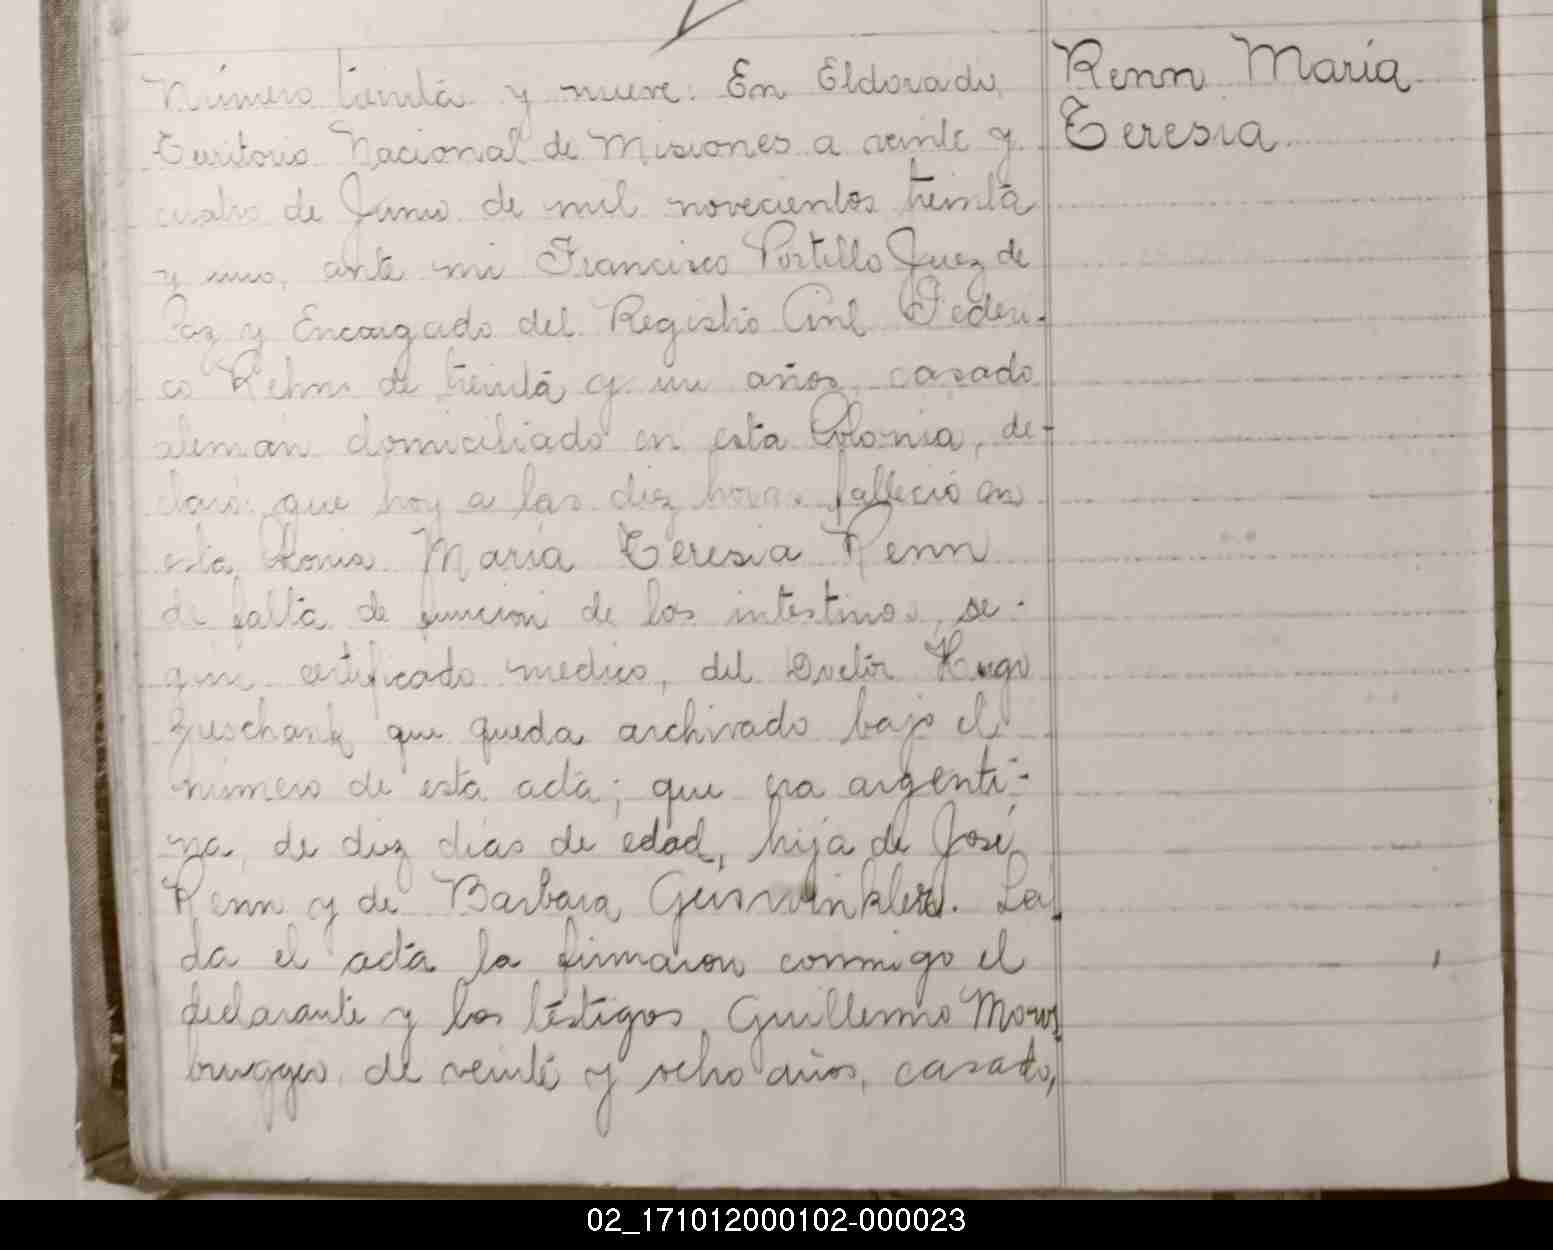 Número treinta y nueve. En Eldorado,
Territorio Nacional de Misiones a veinte y
cuatro de Junio de mil novecientos treinta
y uno, ante mi Francisco Portillo Juez de
Paz y Encargado del Registro Civil Federi-
co Rehm de treinta y un años, casado
aleman domiciliado en esta Colonia, de-
claró: que hoy a las diez horas falleció en
esta Colonia Maria Teresia Renn
de falta de funcion de los intestinos, se-
gun certificado medico, del Doctor Hugo
que queda archivado bajo el
número de esta acta; que era argenti-
na, de diez dias de edad, hija de José
Renn y de Barbara Geiswinkler. Lei-
da el acta la firmaron conmigo el
declarante y los testigos, Guillermo
de veinte y ocho años, casado,
Renn Maria
Teresia
02_171012000102-000023